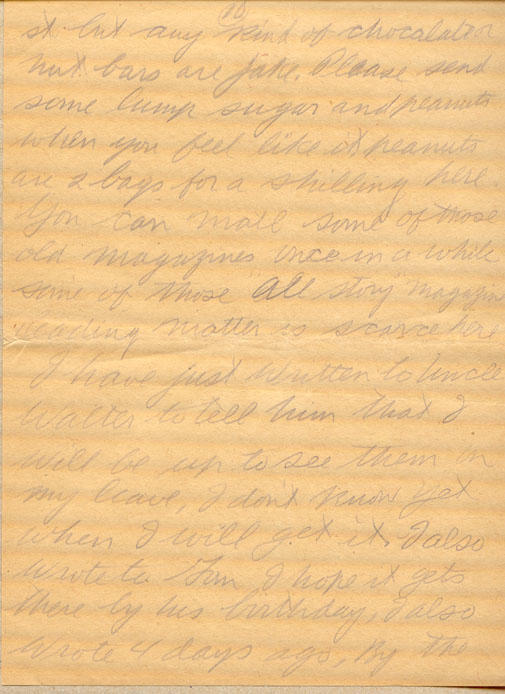 10
st but any kind of chocolate or
nut bars are jake. Please send
some lump sugar and peanuts
when you feel like it peanuts
are 2 bags for a shilling here.
You can mail some of those
old magazines once in a while
some of those "All story" magazin
reading matter is scarce here
I have just written to Uncle
Walter to tell him that I
will be up to see them on
my leave, I don't know yet
when I will get it. I also
wrote to I hope it gets
there by his birthday, I also
wrote 4 days ago, By the